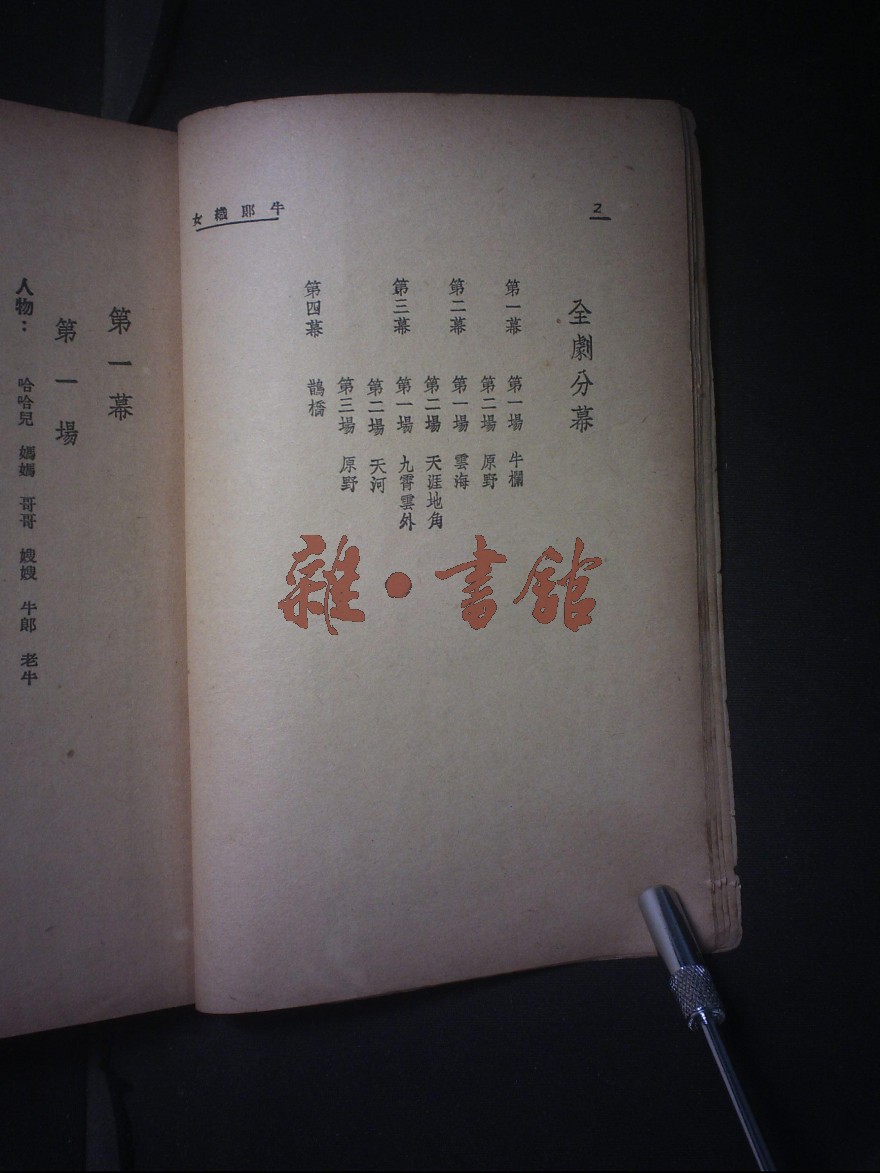 2
牛郎織女
全劇分幕
第一幕 第一場 牛欄
第二場 原野
第二幕 第一場 雲海
第二場 天涯地角
第三幕 第一場 九霄雲外
第二場 天河
第三場 原野
第四幕 鵲橋
雜•書館
第一幕
第一場
人物： 哈哈兒 媽媽 哥哥 嫂嫂 牛郎 老牛